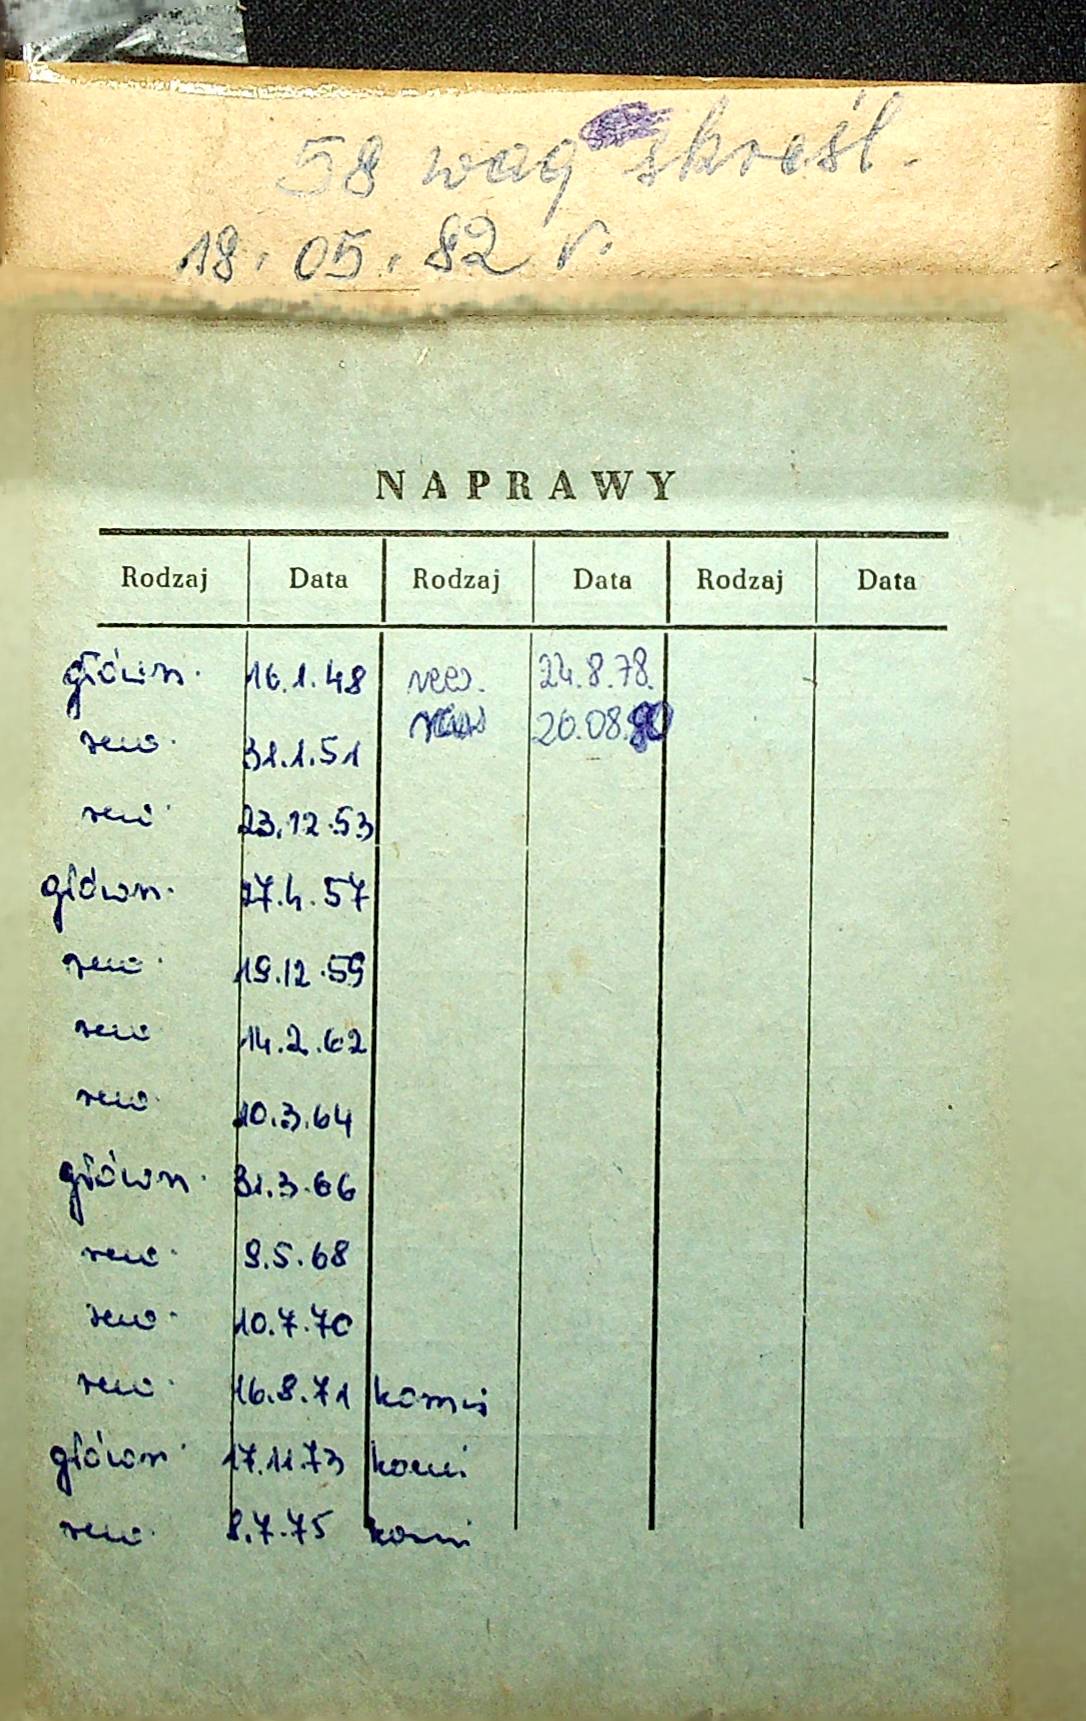 58 wag skreśl.
18.05.82 r.
NAPRAWY
Rodzaj Data Rodzaj Data Rodzaj Data
główn. 16.1.48 rew. 24.8.78.
rew. 31.1.51 rew 20.08.80
rew. 23.12.53
główn. 27.4.57
rew. 19.12.59
rew 14.2.62
rew. 10.3.64
główn. 31.3.66
rew. 9.5.68
rew. 10.7.70
rew. 16.8.71
główn. 17.11.73
rew. 8.7.75